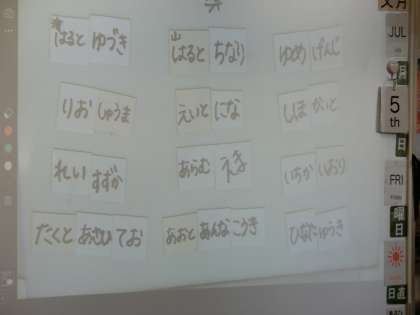 はると ゆづき
山 はると ちなり
ゆめ げんじ
りお しゅうま
えいと にな
しほ かいと
れい すずか
あらむ
いちか いおり
たくと あさひ てお
あおと あんな こうき
ひなた ゆうき
JUL
月
5th
日
FRI
曜日
日直